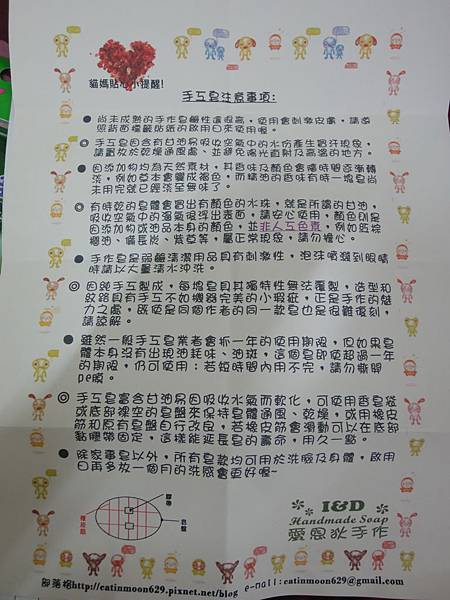 貓媽貼心小提醒!
手工皂注意事項:
● 尚未成熟的手作皂鹼性還很高,使用會刺激皮膚,請遵
照背面標籤貼紙的啟用日來使用喔。
◎ 手工皂因含有甘油易吸收空氣中的水份產生冒汗現象,
請置放於乾燥通風處、並避免陽光直射及高溫的地方。
● 因添加物均為天然素材,其香味及顏色會隨時間逐漸轉
淡,例如草本會變成褐色,而精油的香味有時一塊皂尚
未用完就已經淡至無味了。
◎ 有時乾的皂體會冒出有顏色的水珠,就是所謂的甘油,
吸收空氣中的濕氣很浮出表面,請安心使用,顏色則是
因添加物或油品本身的顏色,並非人工色素,例如紅棕
櫚油、備長炭、紫草等,屬正常現象,請勿擔心。
● 手作皂是弱鹼清潔用品具有刺激性,泡沫噴濺到眼睛
時請以大量清水沖洗。
◎ 因純手工製成,每塊皂具其獨特性無法複製,造型和
紋路具有手工不如機器完美的小瑕疵,正是手作的魅
力之處,既使是同個作者的同一款皂也是很難復刻,
請諒解。
● 雖然一般手工皂業者會抓一年的使用期限,但如果皂
體本身沒有出現油耗味、油斑,這個皂即使超過一年
的期限,仍可使用;若短時間內用不完,請勿撕開
pe膜。
◎ 手工皂富含甘油易因吸收水氣而軟化,可使用香皂袋
或底部裸空的皂盤來保持皂體通風、乾燥,或用橡皮
筋和原有皂盤自行改良,若橡皮筋會滑動可以在底部
黏膠帶固定,這樣能延長皂的壽命,用久一點。
● 除家事皂以外,所有皂款均可用於洗臉及身體,啟用
日再多放一個月的洗感會更好喔~
膠帶
橡皮筋
皂盤
I&D
Handmade Soap
愛恩狄手作
部落格http://eatinmoon629.pixnet.net/blog e-mail:eatinmoon629@gmail.com